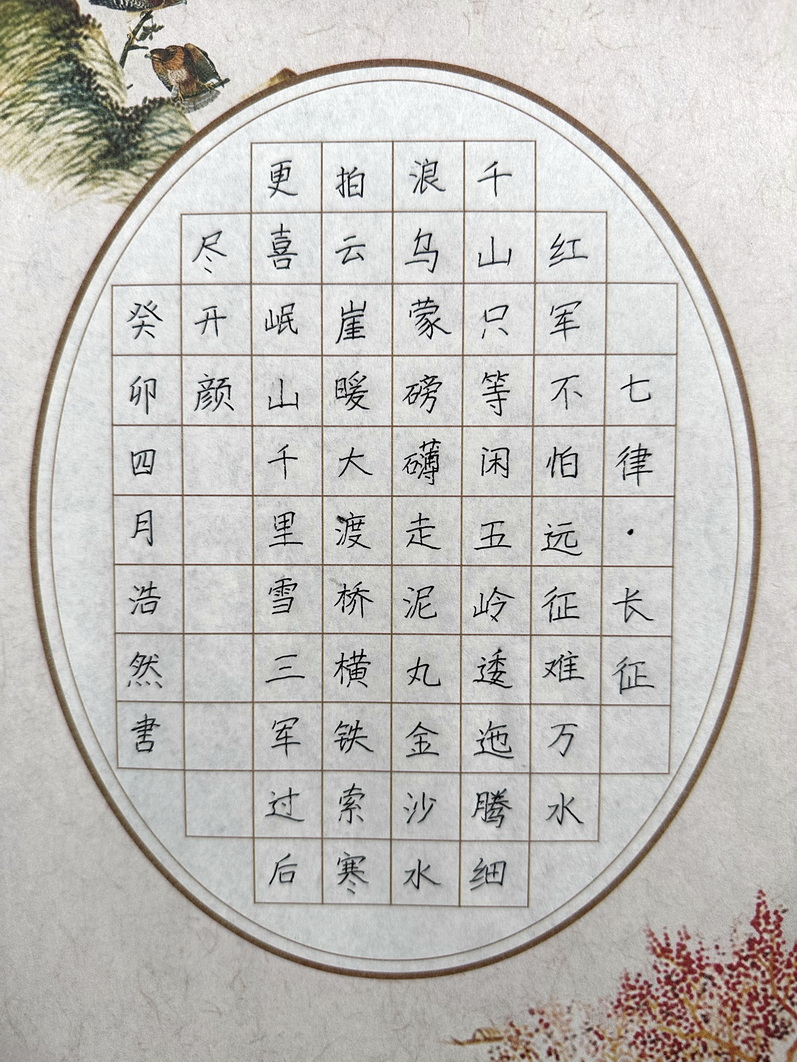 七律·长征
红军不怕远征难万水
千山只等闲五岭逶迤腾细
浪乌蒙磅礴走泥丸金沙水
拍云崖暖大渡桥横铁索寒
更喜岷山千里雪三军过后
尽开颜
癸卯四月浩然书